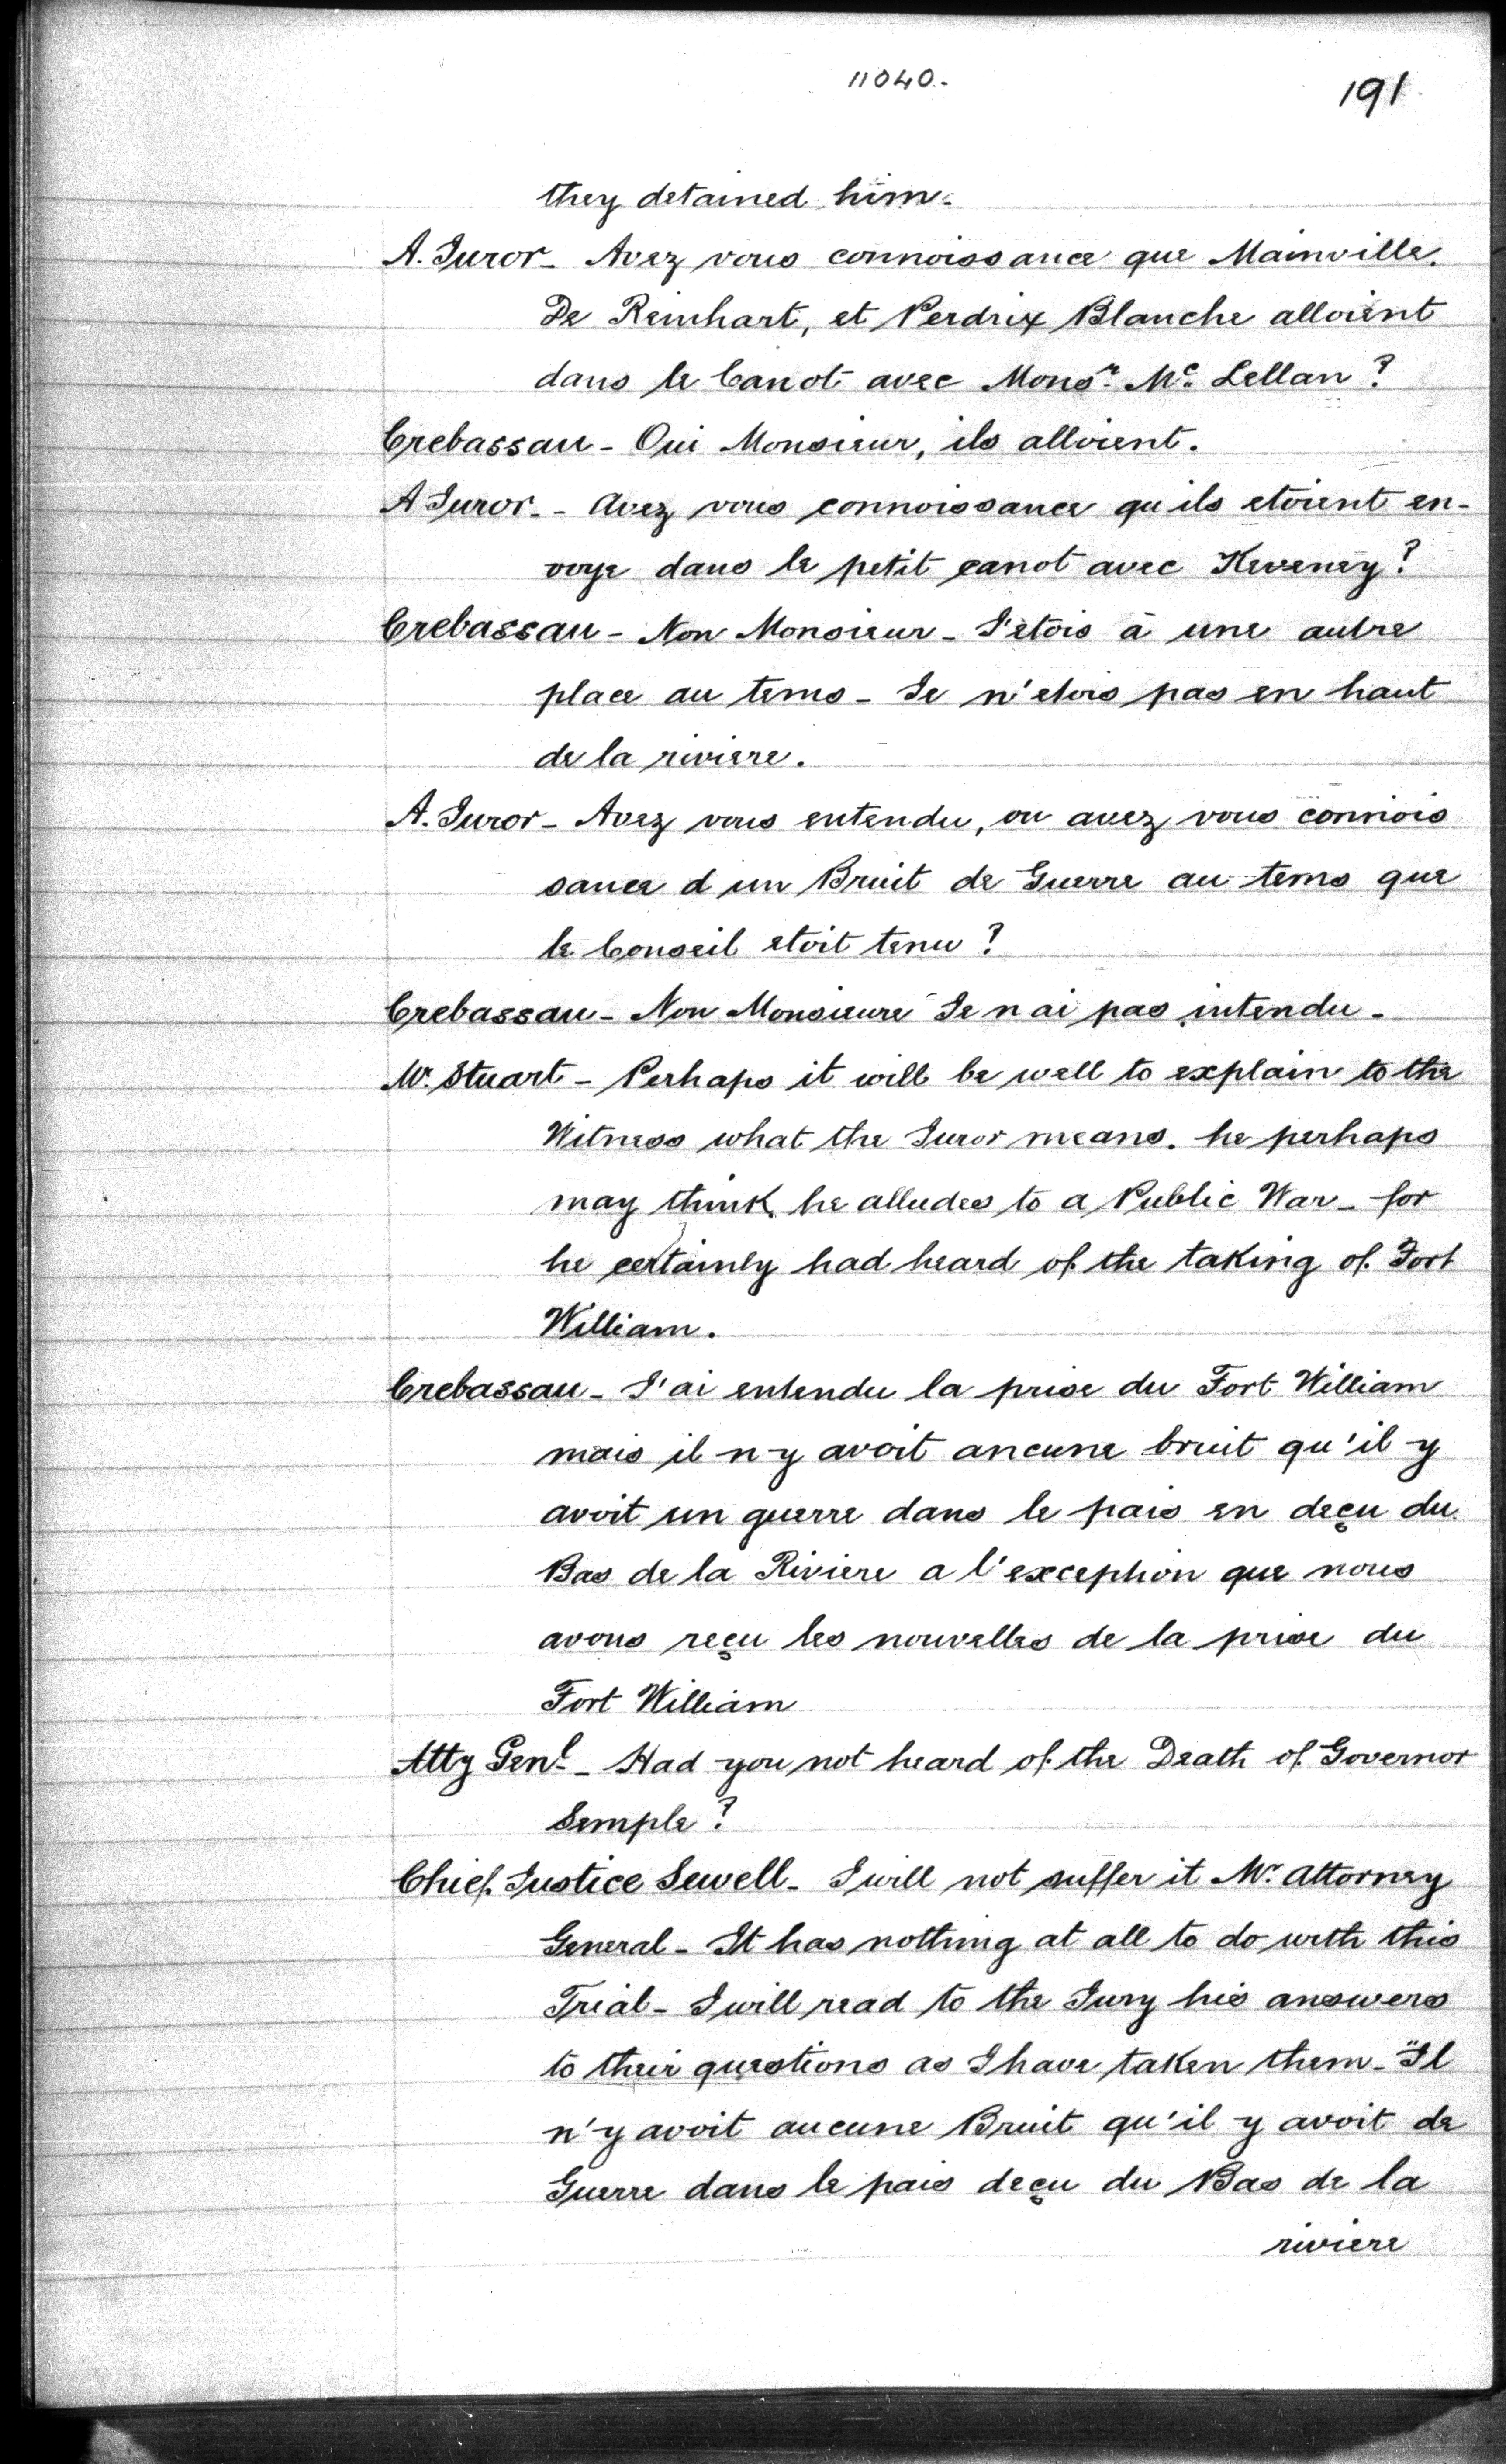 11040.-
191
they detained him.
A. Juror - Avez vous connoissance que Mainville.
De Reinhart, et Perdrix Blanche alloient
dans le Canot avec Monsr. Mc. Lellan?
Crebassau - Oui Monsieur, ils alloient.
A Juror. - Avez vous connoissance qu ils etoient en-
voye dans le petit canot avec Keveney?
Crebassau - Non Monsieur - J'etois à une autre
place au tems - Je n'etois pas en haut
de la riviere.
A. Juror - Avez vous entendu, ou avez vous connois
sance d un Bruit de Guerre au tems que
le Conseil etoit tenu?
Crebassau - Non Monsieure Je n ai pas intendu.
Mr. Stuart - Perhaps it will be well to explain to the
Witness what the Juror means. he perhaps
may think he alludes to a Public War - for
he certainly had heard of the taking of Fort
William.
Crebassau - J'ai entendu la prise du Fort William
mais il n-y avoit aucune bruit qu'il y
avoit un guerre dans le pais en deçu du
Bas de la Riviere a l'exception que nous
avons reçu les nouvelles de la prise du
Fort William
Atty Genl - Had you not heard of the Death of Governor
Semple?
Chief Justice Sewell - I will not suffer it Mr. Attorney
General - It has nothing at all to do with this
Trial - I will read to the Jury his answers
to their questions as I have taken them - "Il
n'y avoit aucune Bruit qu'il y avoit de
Guerre dans le pais deçu du Bas de la
riviere